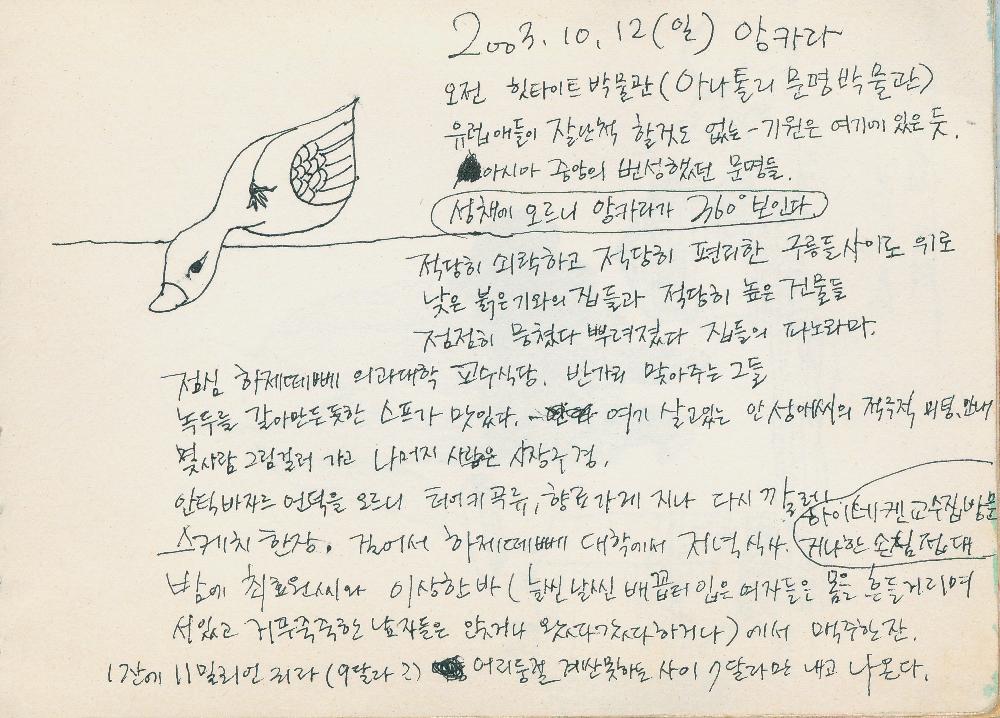 2003. 10. 12 (일) 앙카라
오전 힛타이트박물관 (아나톨리 문명박물관)
유럽애들이 잘난척 할것도 없는 - 기원은 여기에 있은 듯.
아시아 중앙의 번성했던 문명들.
성채에 오르니 앙카라가 360° 보인다.
적당히 쇠락하고 적당히 편리한 구릉들사이로 위로
낮은 붉은기와의 집들과 적당히 높은 건물들
점점히 뭉쳤다 뿌려졌다 집들의 파노라마.
점심 하제떼뻬 의과대학 교수식당. 반가히 맞아주는 그들
녹두를 갈아만든듯한 스프가 맛있다. 여기 살고있는 안성애씨의 적극적 안내
몇사람 그림걸러 가고 나머지 사람은 시장구경.
안틱바자르 언덕을 오르니 터어키 곡류, 향료가게 지나 다시
하이데켄교수집방문
스케치 한장. 걸어서 하제떼뻬 대학에서 저녁식사.
거나한 손님접대
밤에 최효원씨와 이상한 바 (늘씬날씬 배꼽티 입은 여자들은 몸을 흔들거리며
서있고 거무죽죽한 남자들은 앉거나 왔다갔다하거나) 에서 맥주한잔.
1잔에 11밀리언 리라 (9달라?) 어리둥절 계산못하는 사이 7달라만 내고 나온다.